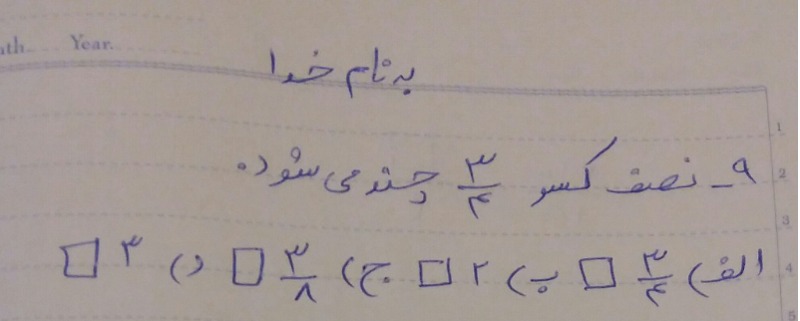 Year.
به نام خدا
۹_ نصف کسر ۳/۴ چند می شود.
الف) ۳/۴ □ ب) ۲ □ ج) ۳/۸ □ د) ۳ □
1
2
3
4
5